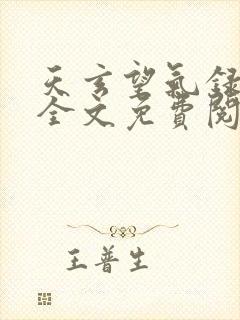 天玄望氣錄
全文免費閱
王普生